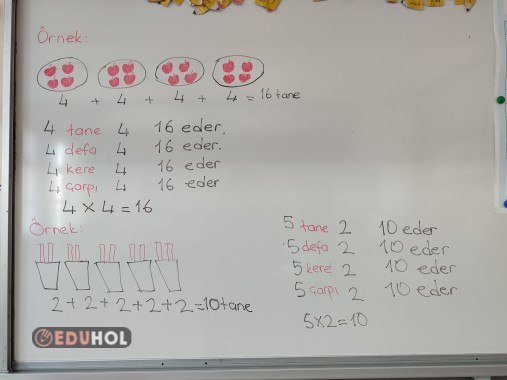 Örnek:
4 + 4 + 4 + 4 = 16 tane
4 tane 4 16 eder.
4 defa 4 16 eder.
4 kere 4 16 eder
4 çarpı 4 16 eder
4 × 4 = 16
Örnek:
2 + 2 + 2 + 2 + 2 = 10 tane
5 tane 2 10 eder
5 defa 2 10 eder
5 kere 2 10 eder
5 çarpı 2 10 eder
5×2=10
EDUHOL